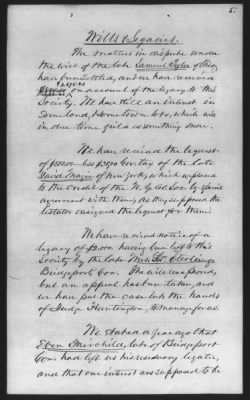 5.
Wills & Legacies.
The matters in dispute under
the will of the late Samuel Tyler of Ohio,
have been settled, and we have received
on account of the legacy to this
Society. We have still an interest in
some land, & some town lots, which will
in due time yield us something more.
We have received the bequest
of $10,000 less $500 for tax of the late
of New York, which is placed
to the credit of the N.Y. Col. Soc. by special
agreement with them, as they supposed the
testator designed the bequest for them.
We have received notice of a
legacy of $2,000 having been left to this
Society by the late Mrs. Sterling
Bridgeport Con. The will was proved,
but an appeal has been taken, and
we have put the case into the hands
of Judge Huntington, to manage for us.
We stated a year ago that
Eben Fairchild, late of Bridgeport
Con. had left us his residuary legatee,
and that our interest was supposed to be